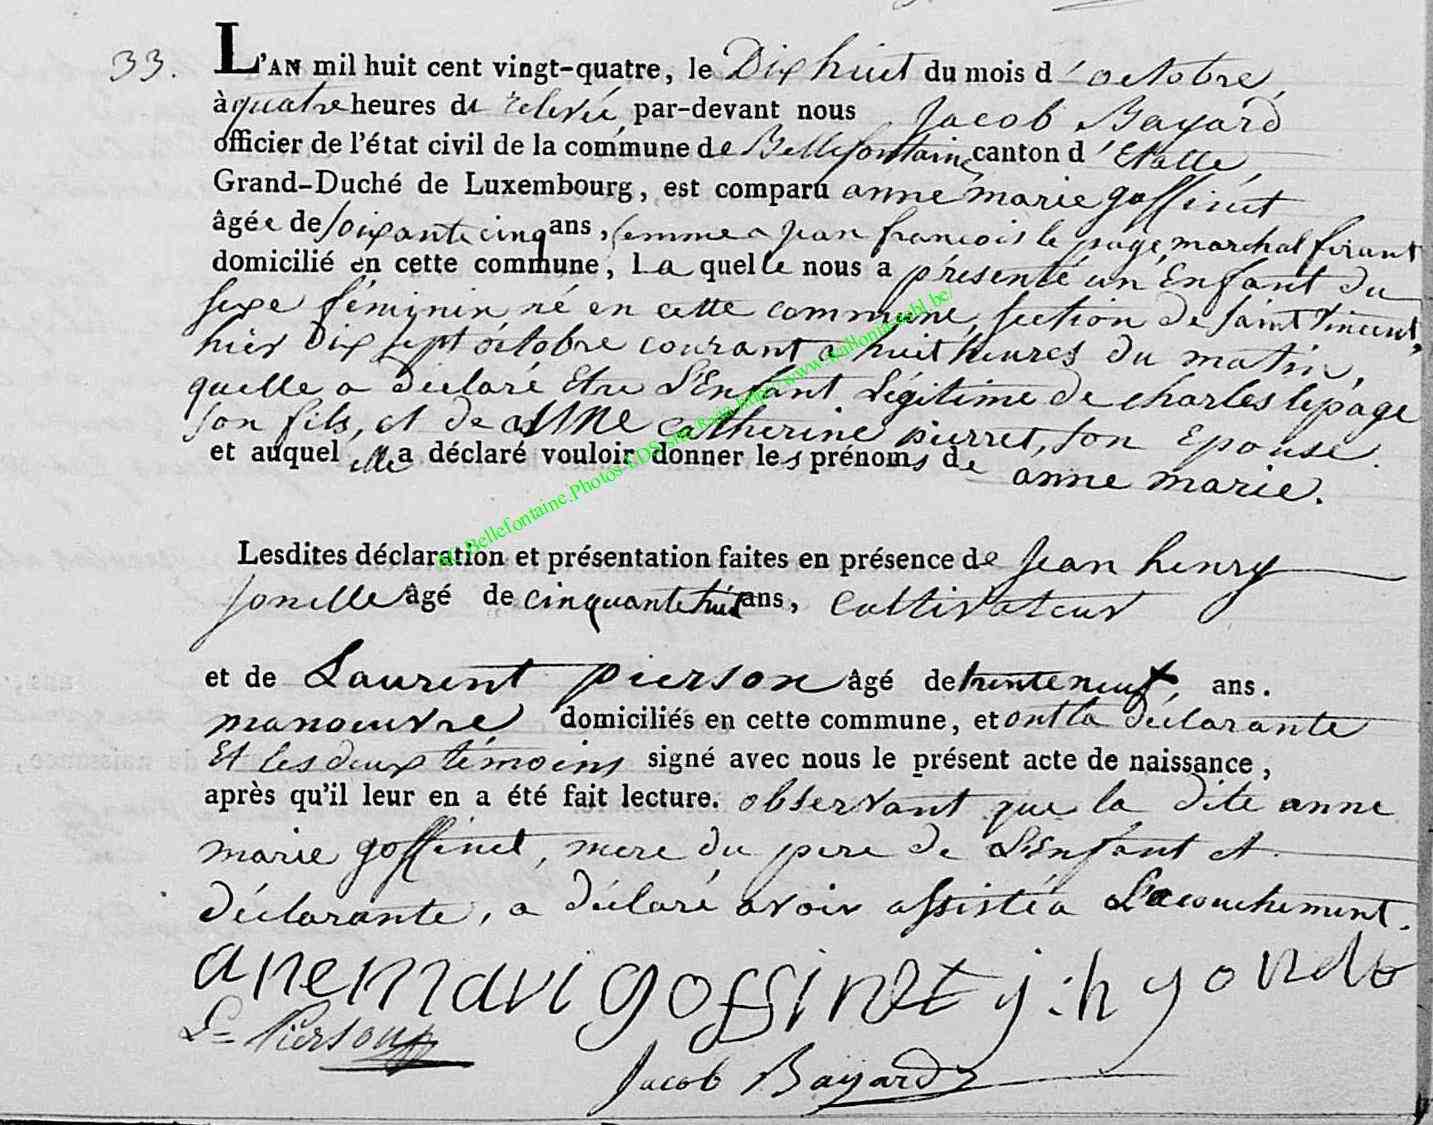 33. L'AN mil huit cent vingt-quatre, le Dix huit du mois d'octobre,
à quatre heures de relevée, par-devant nous Jacob Bayard
officier de l'état civil de la commune de Bellefontaine, canton d'Etalle,
Grand-Duché de Luxembourg, est comparu anne marie goffinet
âgée de soixante cinq ans, femme a jean francois le page, marchal ferant
domicilié en cette commune, la quelle nous a présenté un Enfant du
sexe féminin né en cette commune, section de saint vincent,
hier dix sept octobre courant a huit heures du matin,
quelle a déclaré Etre L'Enfant Légitime de charles lepage
son fils, et de anne catherine pierret, son Epouse.
et auquel elle a déclaré vouloir donner les prénoms de anne marie.
Lesdites déclaration et présentation faites en présence de jean henry
âgé de cinquante huit ans, cultivateur
et de Laurent pierson âgé de trente neuf, ans.
manoeuvre, domiciliés en cette commune, et ont la déclarante
Et les deux témoins signé avec nous le présent acte de naissance,
après qu'il leur en a été fait lecture. observant que la dite anne
marie goffinet, mere du pere de L'Enfant et
déclarante, a déclaré avoir assisté a L'acouchement.
anemari goffinet j:h
Ln Pierson
Jacob Bayard